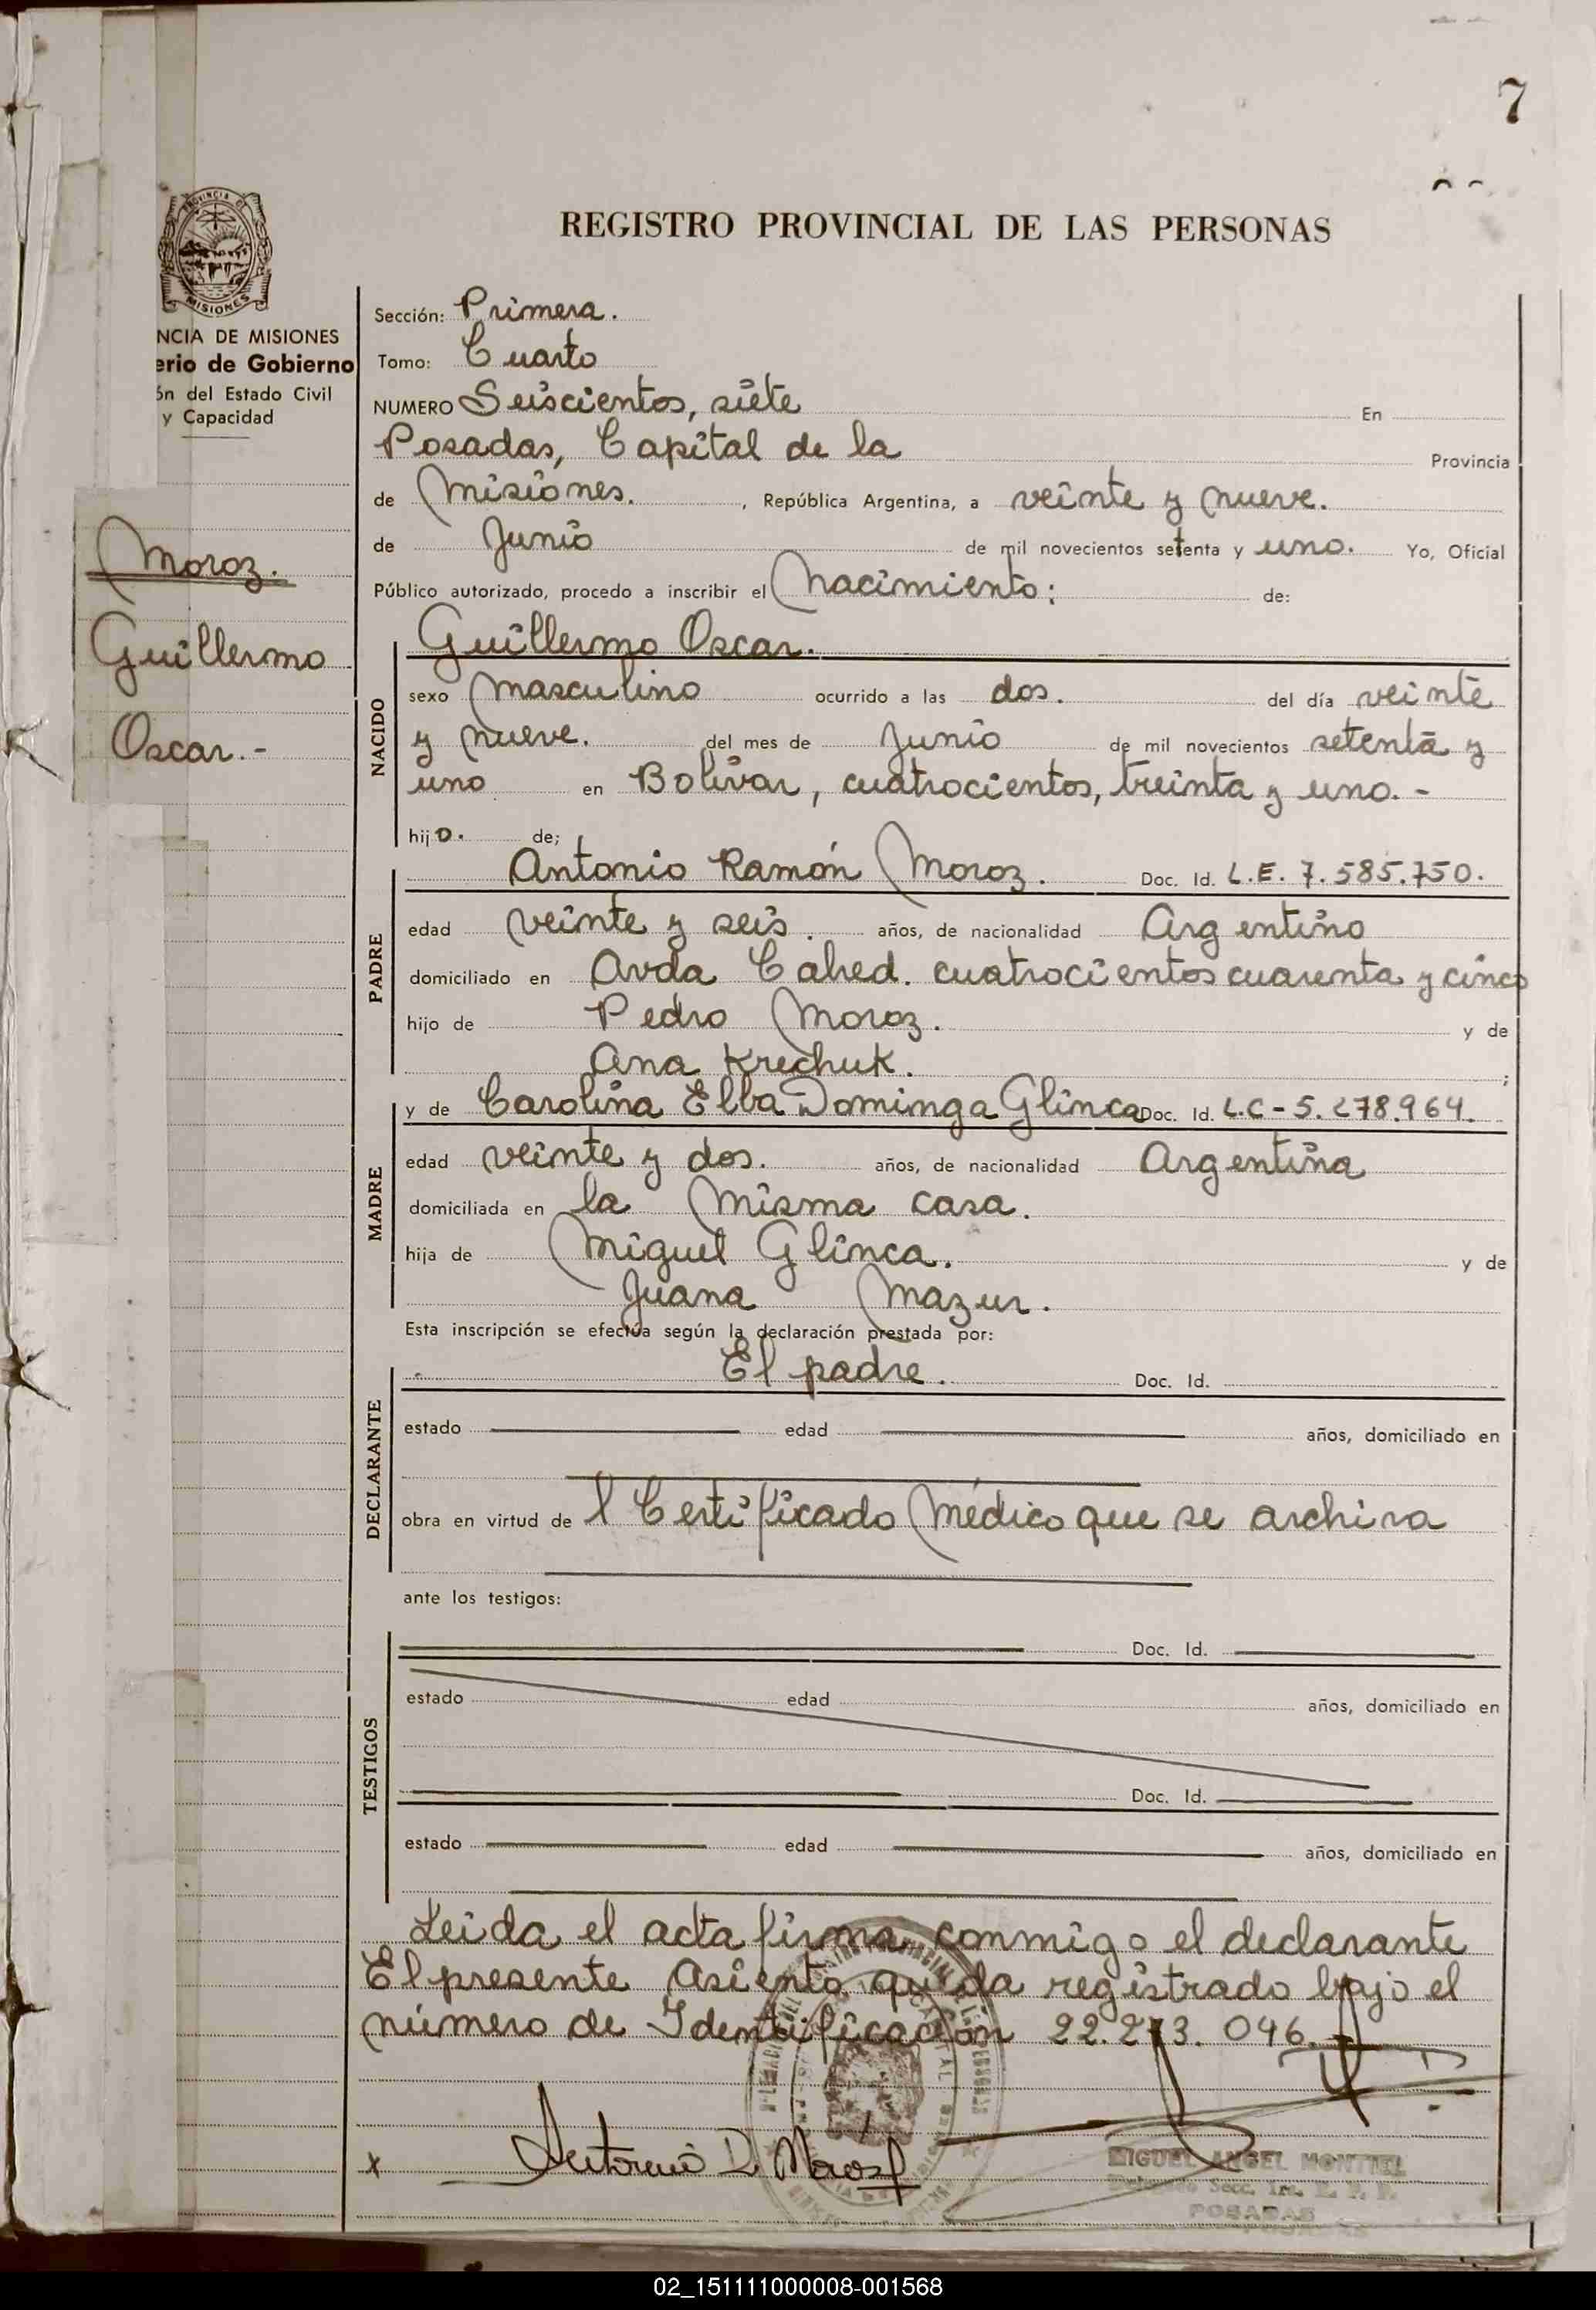 7
PROVINCIA DE
MISIONES
REGISTRO PROVINCIAL DE LAS PERSONAS
NCIA DE MISIONES
erio de Gobierno
ón del Estado Civil
y Capacidad
Moroz.
Guillermo
Oscar.-
Sección: Primera.
Tomo: Cuarto
NUMERO Seiscientos, siete En
Posadas, Capital de la Provincia
de Misiones. , República Argentina, a veinte y nueve.
de Junio de mil novecientos setenta y uno. Yo, Oficial
Público autorizado, procedo a inscribir el Nacimiento: de:
NACIDO
Guillermo Oscar.
sexo masculino ocurrido a las dos. del día veinte
y nueve. del mes de Junio de mil novecientos setenta y
uno en Bolívar, cuatrocientos, treinta y uno.-
hijo. de;
PADRE
Antonio Ramón Moroz. Doc. Id. L.E. 7.585.750.
edad veinte y seis. años, de nacionalidad Argentino
domiciliado en Avda Cahed. cuatrocientos cuarenta y cinco
hijo de Pedro Moroz. y de
Ana Krechuk. ;
MADRE
y de Carolina Elba Dominga Glinca Doc. Id. L.C-5.278.964.
edad veinte y dos. años, de nacionalidad Argentina
domiciliada en la Misma casa.
hija de Miguel Glinca. y de
Juana Mazur.
Esta inscripción se efectúa según la declaración prestada por:
DECLARANTE
El padre. Doc. Id.
estado edad años, domiciliado en
obra en virtud de l Certificado Médico que se archiva
ante los testigos:
TESTIGOS
Doc. Id.
estado edad años, domiciliado en
Doc. Id.
estado edad años, domiciliado en
Leida el acta firma conmigo el declarante
El presente Asiento queda registrado bajo el
número de Identificación 22.273.046.
x Antonio R. Moroz
MIGUEL ANGEL MONTIEL
Secc. 1ra. R. P. P.
POSADAS
02_151111000008-001568